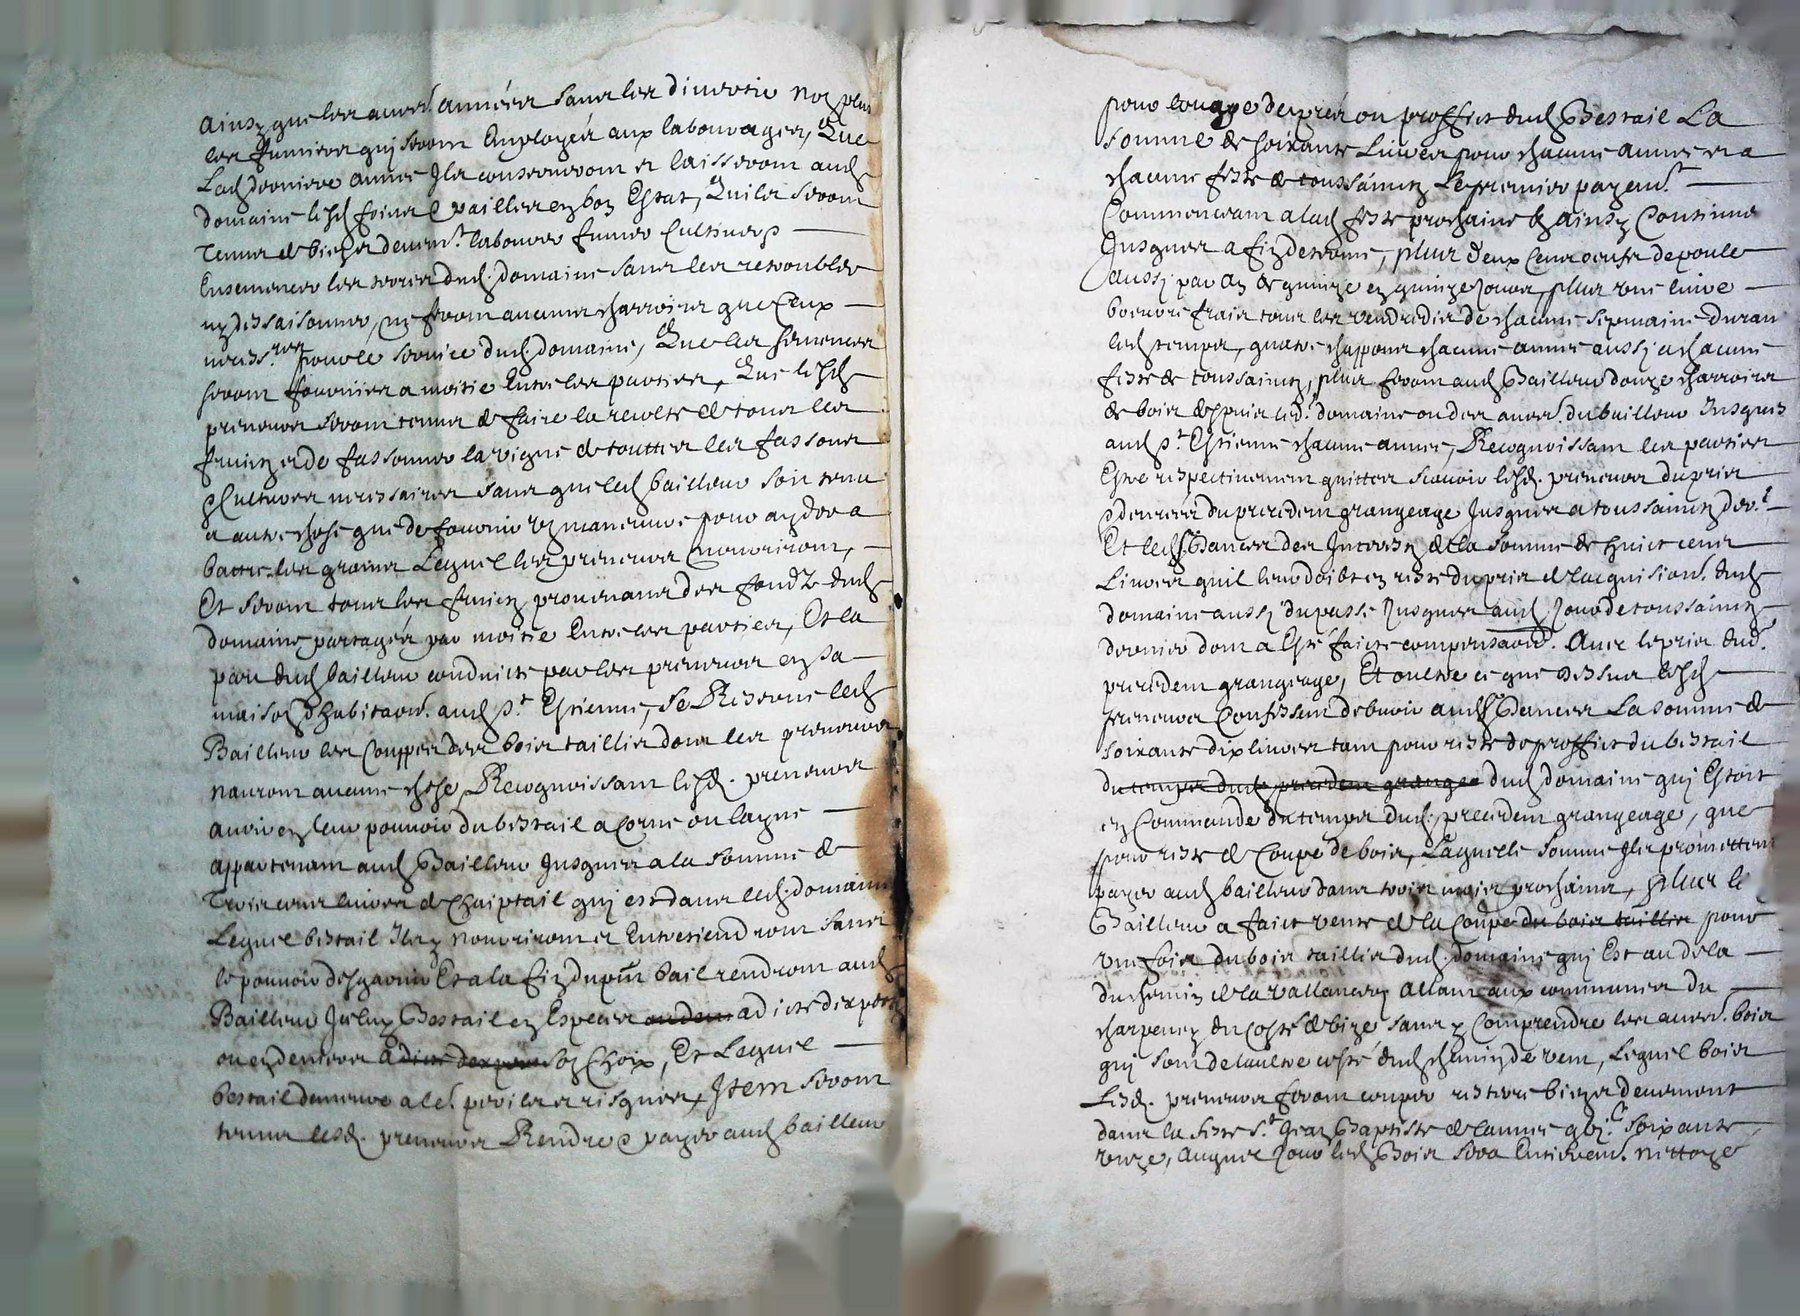 Ainsy que les autres années sans les divertir non plus
les fumiers quy seront Employés aux labourages, Que
Lad derniere année Ils conserveront et laisseront aud
domaine lesd foins & pailles en bon Estat, Quils seront
Tenus de bien et deuemt labourer fumer Cultiver &
Ensemencer les terres dud domaine sans les retroubler
ny dessaisonner, ny feront aucuns charrois que Ceux
necessres pour le service dud domaine, Que les semences
seront fournies a moitie Entre les parties, Que lesd
preneurs seront tenus de faire la recolte de tous les
fruictz et de fassonner la vigne de touttes les fassons
& Cultures necessaires sans que led bailleur soit tenu
a autre chose que de fournir un maneuvre pour ayder a
battre les grains Lequel les preneurs nourriront,
Et seront tous les fruictz provenants des fondz dud
domaine partagés par moitie Entre les parties, Et la
part dud bailleur conduicte par les preneurs en sa
maison d'habitaon. aud St Estienne, Se Reserve led
Bailleur les Couppes des bois taillis dont les preneurs
n'auront aucune chose, Recognoissant lesd. preneurs
avoir en leur pouvoir du bestail a Corne ou layne
appartenant aud Bailleur Jusques a la somme de
Trois cent livres de Chaiptail quy est dans led domaine
Lequel bestail Ils y nourriront et Entretiendront sans
le pouvoir desgarnir Et a la fin du pnt bail rendront aud
Bailleur Iceluy Bestail en Especes ou dem a dicte dexpertz
ou en deniers a dicte dexpertz son Choix, Et Lequel
bestail demeure a leurs perils et risques, Item seront
tenus lesd. preneurs Rendre & payer aud bailleur
pour louage de prés ou proffict dud Bestail La
somme de soixante Livres pour chacune annee et a
chacune feste de toussainctz Le premier payemt
Commencant a lad feste prochaine & ainsy Continuer
Jusques a fin de terme, plus deux Cents oeufs de poule
aussy par an de quinze en quinze Jours, plus une livre
beurre frais tous les vendredis de chacune sepmaine durant
led temps, quatre chappons chacune annee aussy a chacune
feste de toussainctz, plus feront aud Bailleur douze charrois
de bois depuis led. domaine ou des autres du bailleur Jusques
aud St Estienne chacune annee, Recognoissant les parties
Estre respectivement quittes scavoir lesd. preneurs du prix
& denrées du precedent grangeage Jusques a toussainctz der.
Et led Sr Dances des Interestz de la somme de huict cent
Livres quil leur doibt en reste du prix de lacquision. dud
domaine aussy du passé Jusques aud Jour de toussainctz
dernier dont a Esté faicte compensaon. Avec le prix dud.
precedent grangeage, Et oultre ce que dessus lesd
preneurs Confessent debvoir aud Sr Dances La somme de
soixante dix livres tant pour reste de proffict du bestail
du temps dud precedent grangea dud domaine quy Estoit
en Commande du temps dud. precedent grangeage, que
pour reste de Coupe de bois, Laquelle somme Ils promettent
payer aud bailleur dans trois mois prochains, plus le
Bailleur a faict vente de la Coupe du bois taillis pour
une fois du bois taillis dud. domaine quy Est au dela
du chemin de la Vallances Allant aux communes du
charpenez du costé de bize sans y Comprendre les autres bois
quy sont de l'aultre costé dud chemin de vent, Lequel bois
Lesd. preneurs feront couper nettoyer bien et deuement
dans la feste St Jean Baptiste de lannee qbic soixante
unze, Auquel Jour led Bois sera Entieremt nettoyé